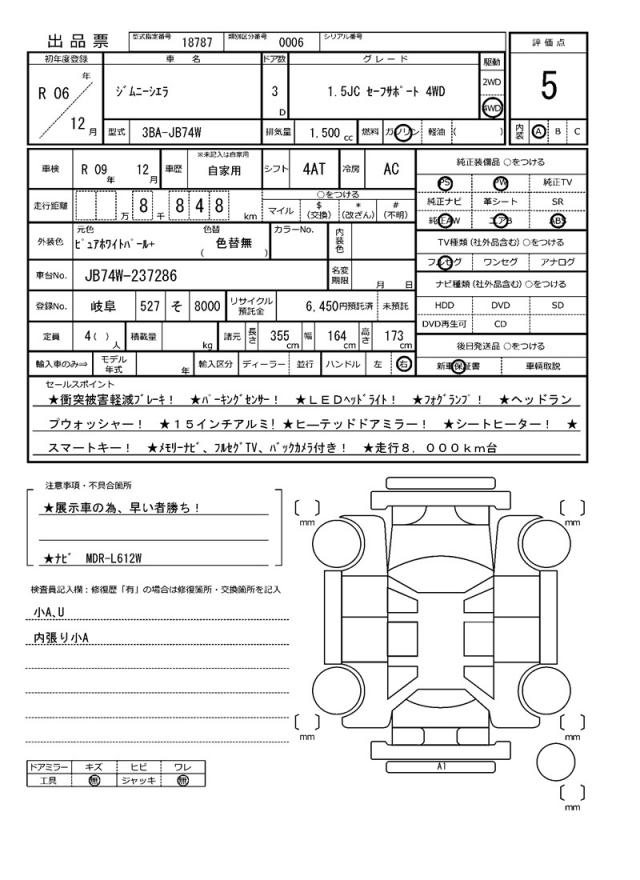 出品票 型式指定番号 18787 類別区分番号 0006 シリアル番号
評価点
5
初年度登録 車名 ドア数 グレード 駆動
R 06 年 12 月 ｼﾞﾑﾆｰｼｴﾗ 3 D 1.5JC ｾｰﾌｻﾎﾟｰﾄ 4WD 2WD 4WD
型式 3BA-JB74W 排気量 1,500 cc 燃料 ガソリン 軽油 ( )
内装 A B C
車検 R 09 年 12 月 車歴 ※未記入は自家用 自家用 シフト 4AT 冷房 AC
走行距離 万 8 千 8 4 8 km
○をつける
マイル $ (交換) * (改ざん) # (不明)
外装色 元色 ﾋﾟｭｱﾎﾜｲﾄﾊﾟｰﾙ+ 色替 ( 色替無 ) カラーNo. 内装色
車台No. JB74W-237286 名変期限 月 日
登録No. 岐阜 527 そ 8000 リサイクル預託金 6,450円預託済 未預託
定員 4( ) 人 積載量 kg 諸元 長さ 355 cm 幅 164 cm 高さ 173 cm
輸入車のみ⇨ モデル年式 年 輸入区分 ディーラー 並行 ハンドル 左 右
純正装備品 ○をつける
PS PW 純正TV
純正ナビ 革シート SR
純正AW エアB ABS
TV種類 (社外品含む) ○をつける
フルセグ ワンセグ アナログ
ナビ種類 (社外品含む) ○をつける
HDD DVD SD
DVD再生可 CD
後日発送品 ○をつける
新車保証書 車輌取説
セールスポイント
★衝突被害軽減ﾌﾞﾚｰｷ！ ★ﾊﾟｰｷﾝｸﾞｾﾝｻｰ！ ★ＬＥＤﾍｯﾄﾞﾗｲﾄ！ ★ﾌｫｸﾞﾗﾝﾌﾟ！ ★ヘッドラン
プウォッシャー！ ★１５インチアルミ！★ヒーテッドドアミラー！ ★シートヒーター！ ★
スマートキー！ ★ﾒﾓﾘｰﾅﾋﾞ、ﾌﾙｾｸﾞTV、ﾊﾞｯｸｶﾒﾗ付き！ ★走行８，０００ｋｍ台
注意事項・不具合箇所
★展示車の為、早い者勝ち！
★ﾅﾋﾞ MDR-L612W
検査員記入欄：修復歴「有」の場合は修復箇所・交換箇所を記入
小A､U
内張り小A
ドアミラー キズ ヒビ ワレ
工具 無 ジャッキ 無
[ ] mm
[ ] mm
[ ] mm
[ ] mm
A1
[ ] mm